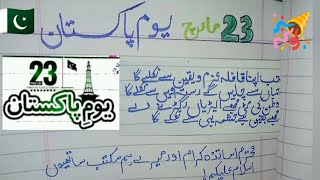 23 مارچ یوم پاکستان
23
یوم پاکستان
جب اپنا قافلہ عزم و یقین سے نکلے گا
جہاں سے چاہیں گے رستہ وہیں سے نکلے گا
وطن کی مٹی مجھے ایڑیاں رگڑنے دے
مجھے یقین ہے چشمہ یہیں سے نکلے گا
محترم اساتذہ کرام اور میرے ہم مکتب ساتھیوں
اسلام علیکم!